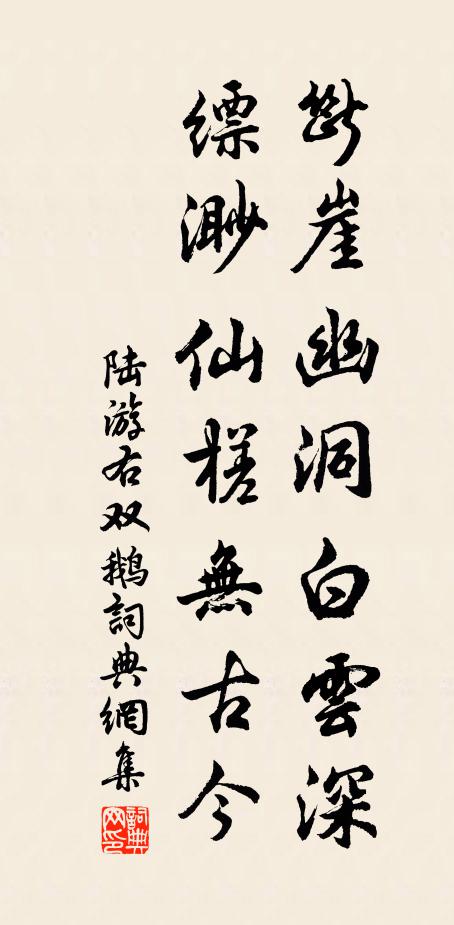 斷崖幽洞白雲深
縹渺仙槎無古今
陆游右双鹅詞典網集
詞典网印